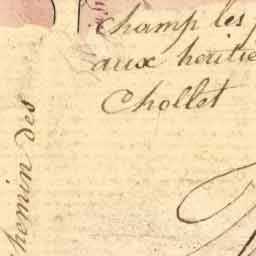 Champ les
aux heritie
Chollet
Chemin des